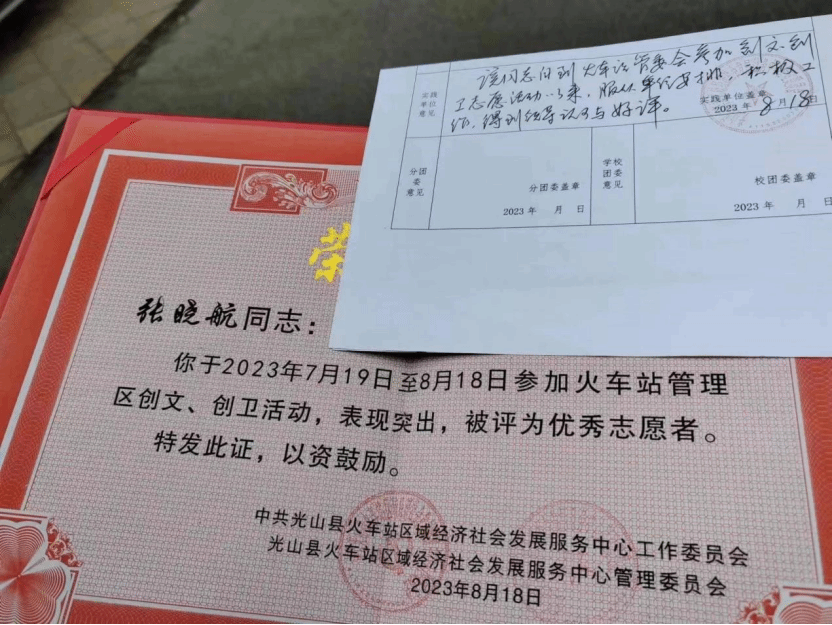 实践
单位
意见
该同志自到火车站管委会参加创文创
卫志愿活动以来，服从单位安排，积极工
作，得到领导认可与好评。
实践单位盖章
2023年8月18日
分团
委
意见
分团委盖章
2023年 月 日
学校
团委
意见
校团委盖章
2023年 月 日
荣
张晓航同志：
你于2023年7月19日至8月18日参加火车站管理
区创文、创卫活动，表现突出，被评为优秀志愿者。
特发此证，以资鼓励。
中共光山县火车站区域经济社会发展服务中心工作委员会
光山县火车站区域经济社会发展服务中心管理委员会
2023年8月18日